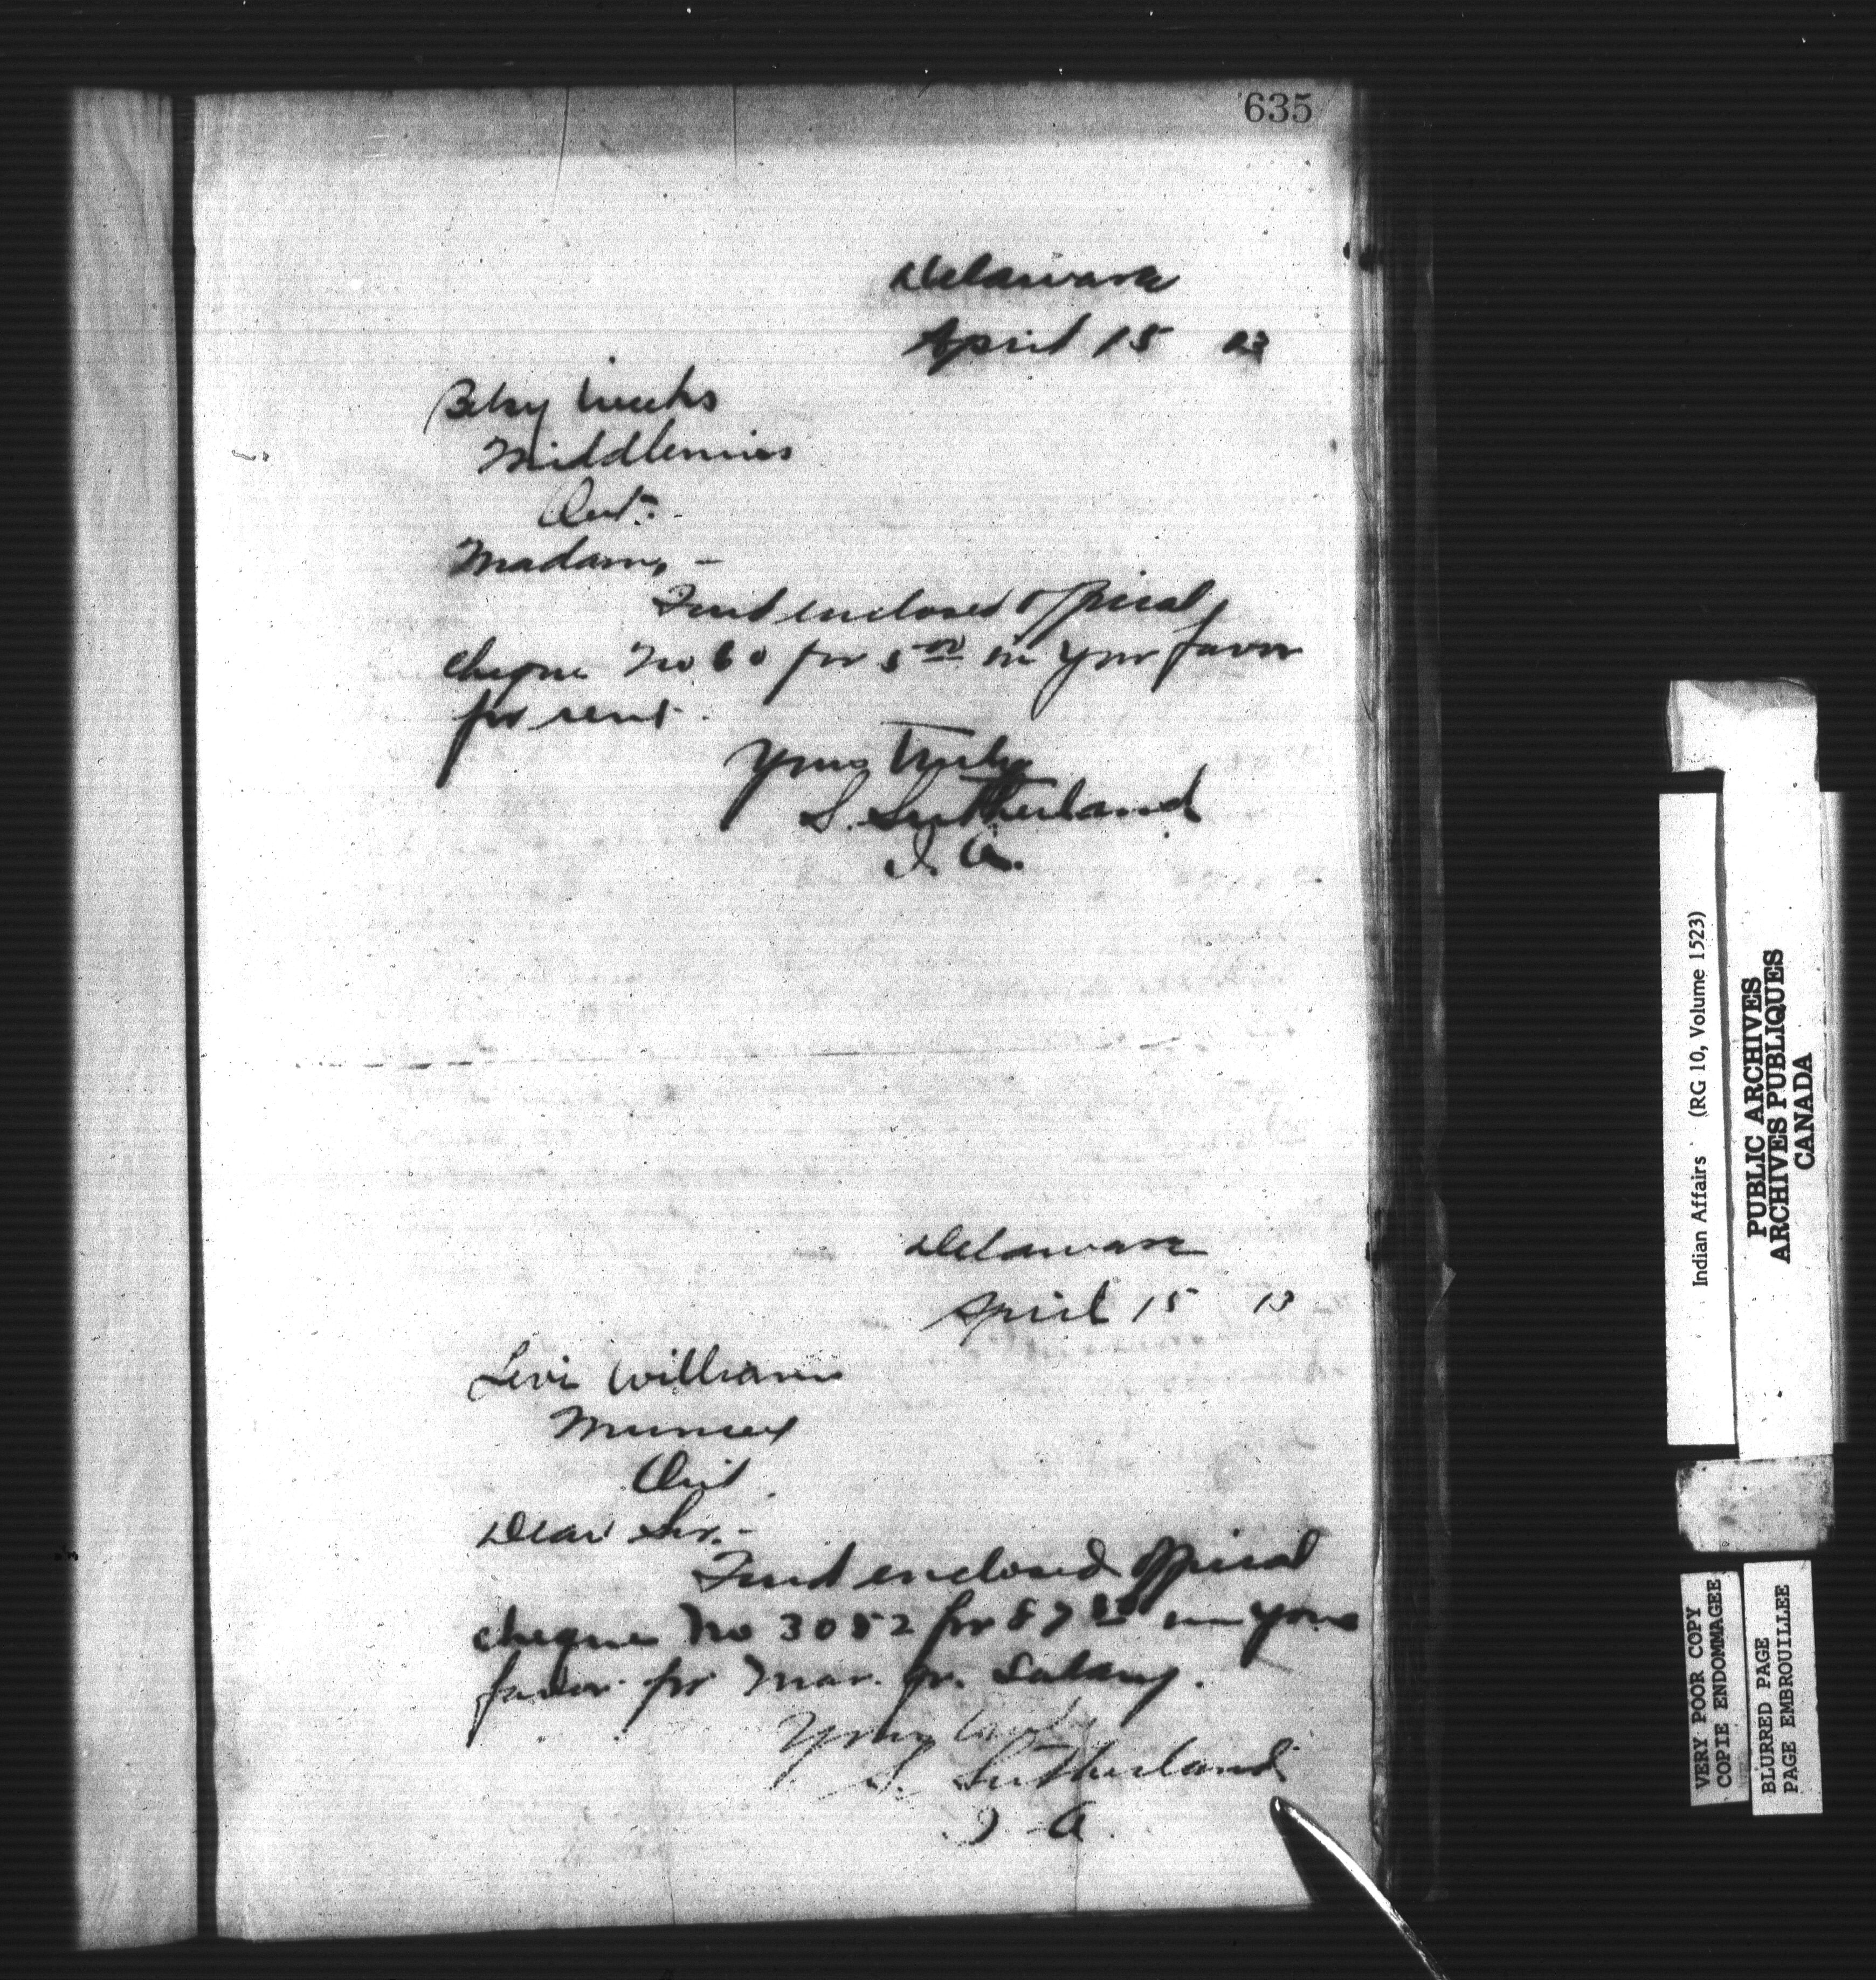 635
Delaware
April 15 03
Betsy Weeks
Middlemiss
Ont.
Madam, -
Find enclosed official
cheque No 60 for 5 00 in your favor
for rent.
Yours truly
S. Sutherland
I. A.
Delaware
April 15
Levi Williams
Muncey
Ont
Dear Sir. -
Find enclosed official
cheque No 3052 for 87 50 in your
favor for Mar. qr. Salary.
Yours truly
S. Sutherland
I. A.
Indian Affairs (RG 10, Volume 1523)
PUBLIC ARCHIVES
ARCHIVES PUBLIQUES
CANADA
VERY POOR COPY
COPIE ENDOMMAGEE
BLURRED PAGE
PAGE EMBROUILLEE